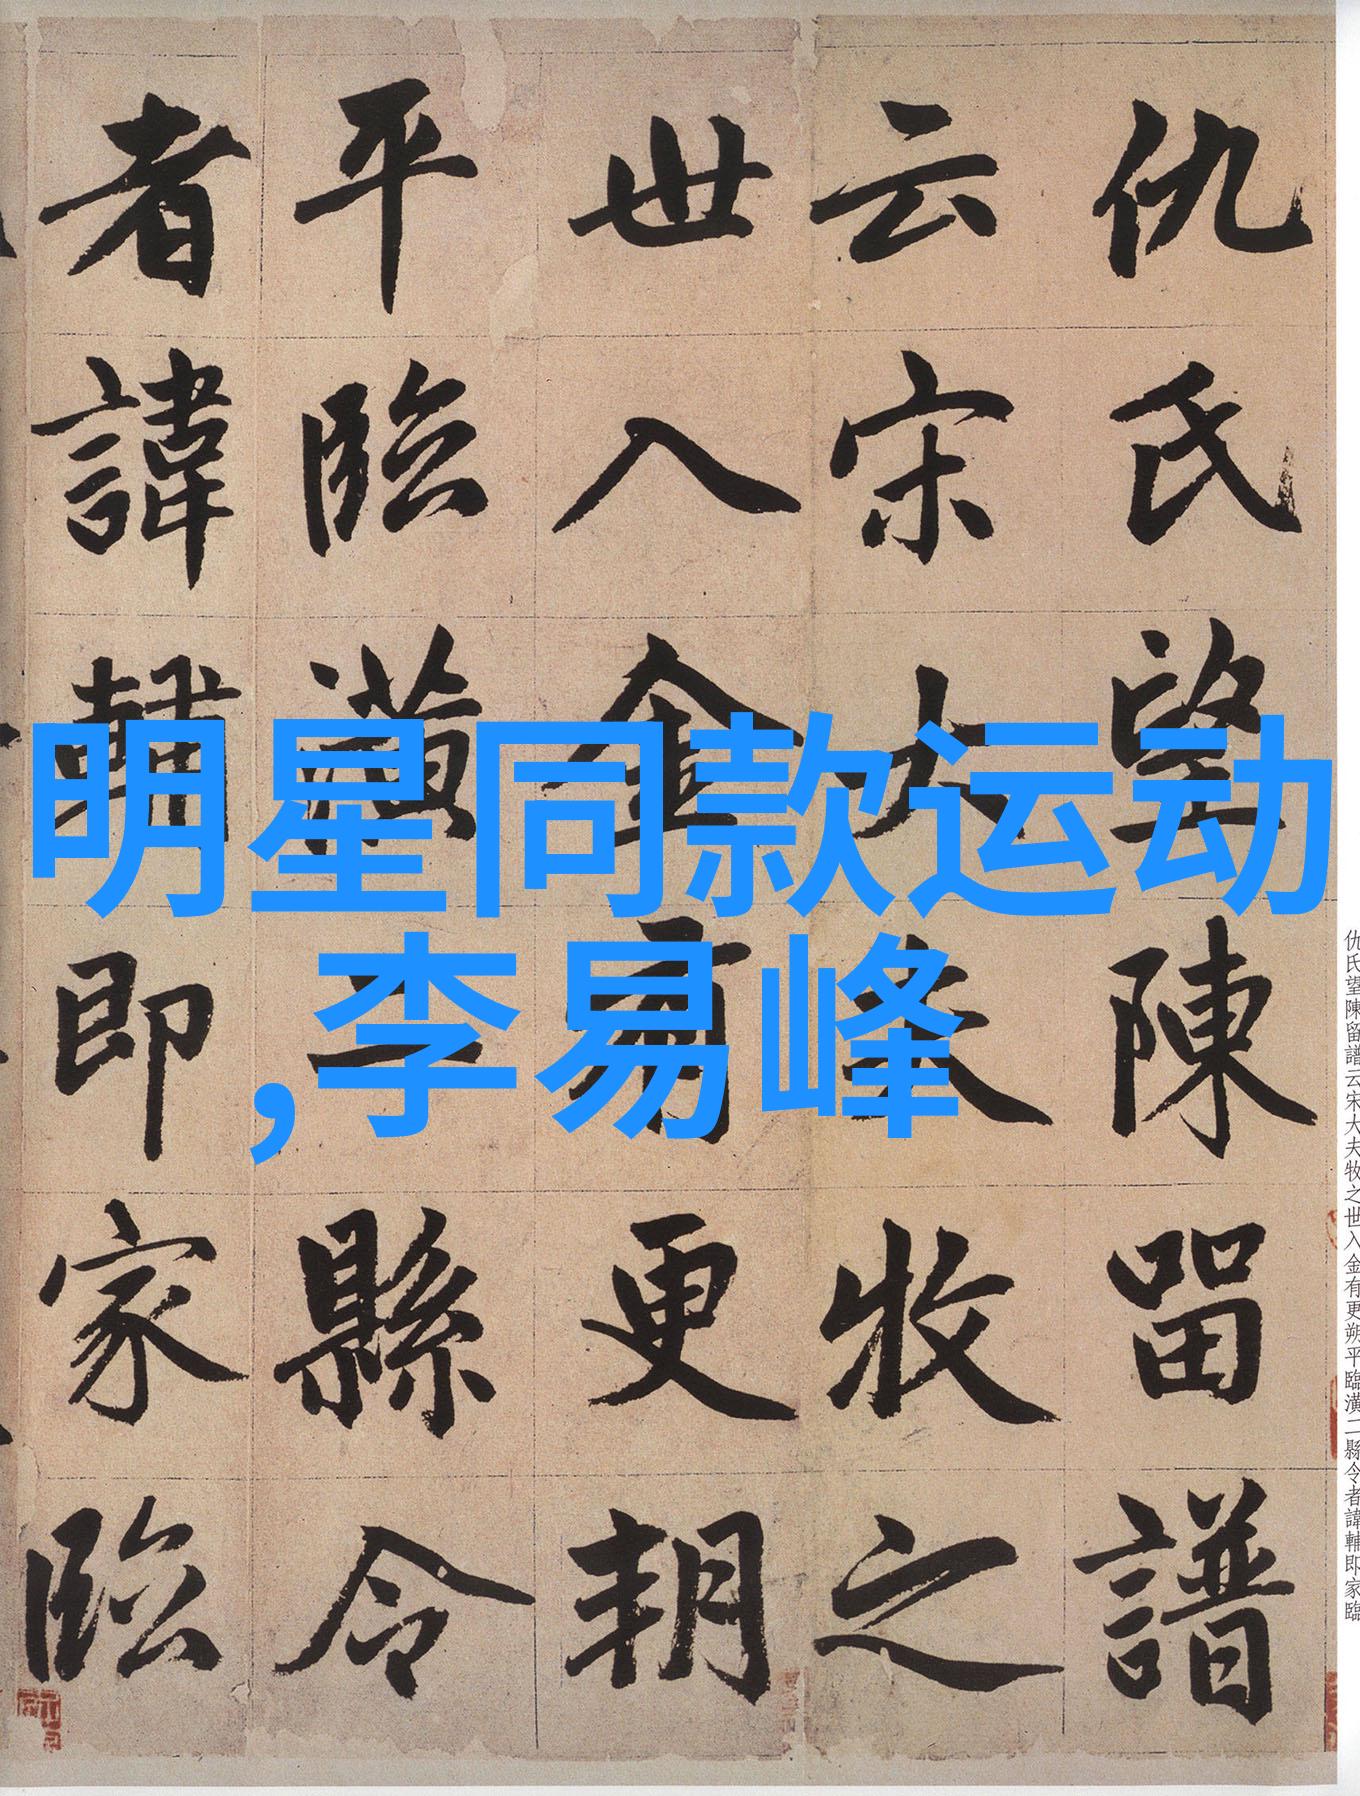 仇氏望陳留譜
云宋大夫牧之
世入金有更朔
平臨潢二縣令
者諱輔即家臨
明星同款运动
,李易峰
仇氏望陳留譜云宋大夫牧之世入金有更朔平臨潢二縣令者諱輔即家臨